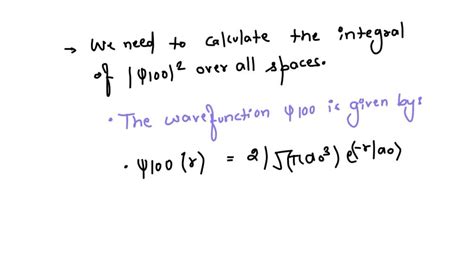 → We need to calculate the integral
of |φ100|² over all spaces.
• The wavefunction φ100 is given by:
• φ100 (r) = 2/√(πa₀³) e^(-r/a₀)